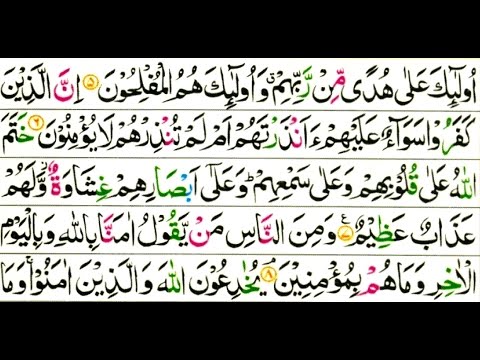 اُولٰٓئِكَ عَلٰى هُدًى مِّنْ رَّبِّهِمْ ۙ وَ اُولٰٓئِكَ هُمُ الْمُفْلِحُوْنَ ۵ اِنَّ الَّذِيْنَ
كَفَرُوْا سَوَآءٌ عَلَيْهِمْ ءَاَنْذَرْتَهُمْ اَمْ لَمْ تُنْذِرْهُمْ لَا يُؤْمِنُوْنَ ۶ خَتَمَ
اللّٰهُ عَلٰى قُلُوْبِهِمْ وَعَلٰى سَمْعِهِمْ ؕ وَعَلٰٓى اَبْصَارِهِمْ غِشَاوَةٌ ؗ وَّلَهُمْ
عَذَابٌ عَظِيْمٌ ۷ ع وَمِنَ النَّاسِ مَنْ يَّقُوْلُ اٰمَنَّا بِاللّٰهِ وَبِالْيَوْمِ
الْاٰخِرِ وَمَا هُمْ بِمُؤْمِنِيْنَ ۘ ۸ يُخٰدِعُوْنَ اللّٰهَ وَ الَّذِيْنَ اٰمَنُوْا ۚ وَمَا